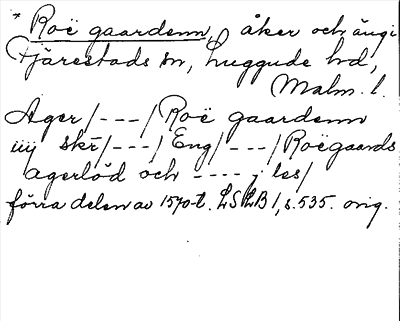 * Roë gaardenn, åker och äng i
Fjärestads sn, Luggude hd,
Malm. l.
Ager/---/Roë gaardenn
iiij skr/---/Eng/---/Roëgaards
agerlöd och ----j les/
förra delen av 1570-t. LSLB 1, s. 535. orig.